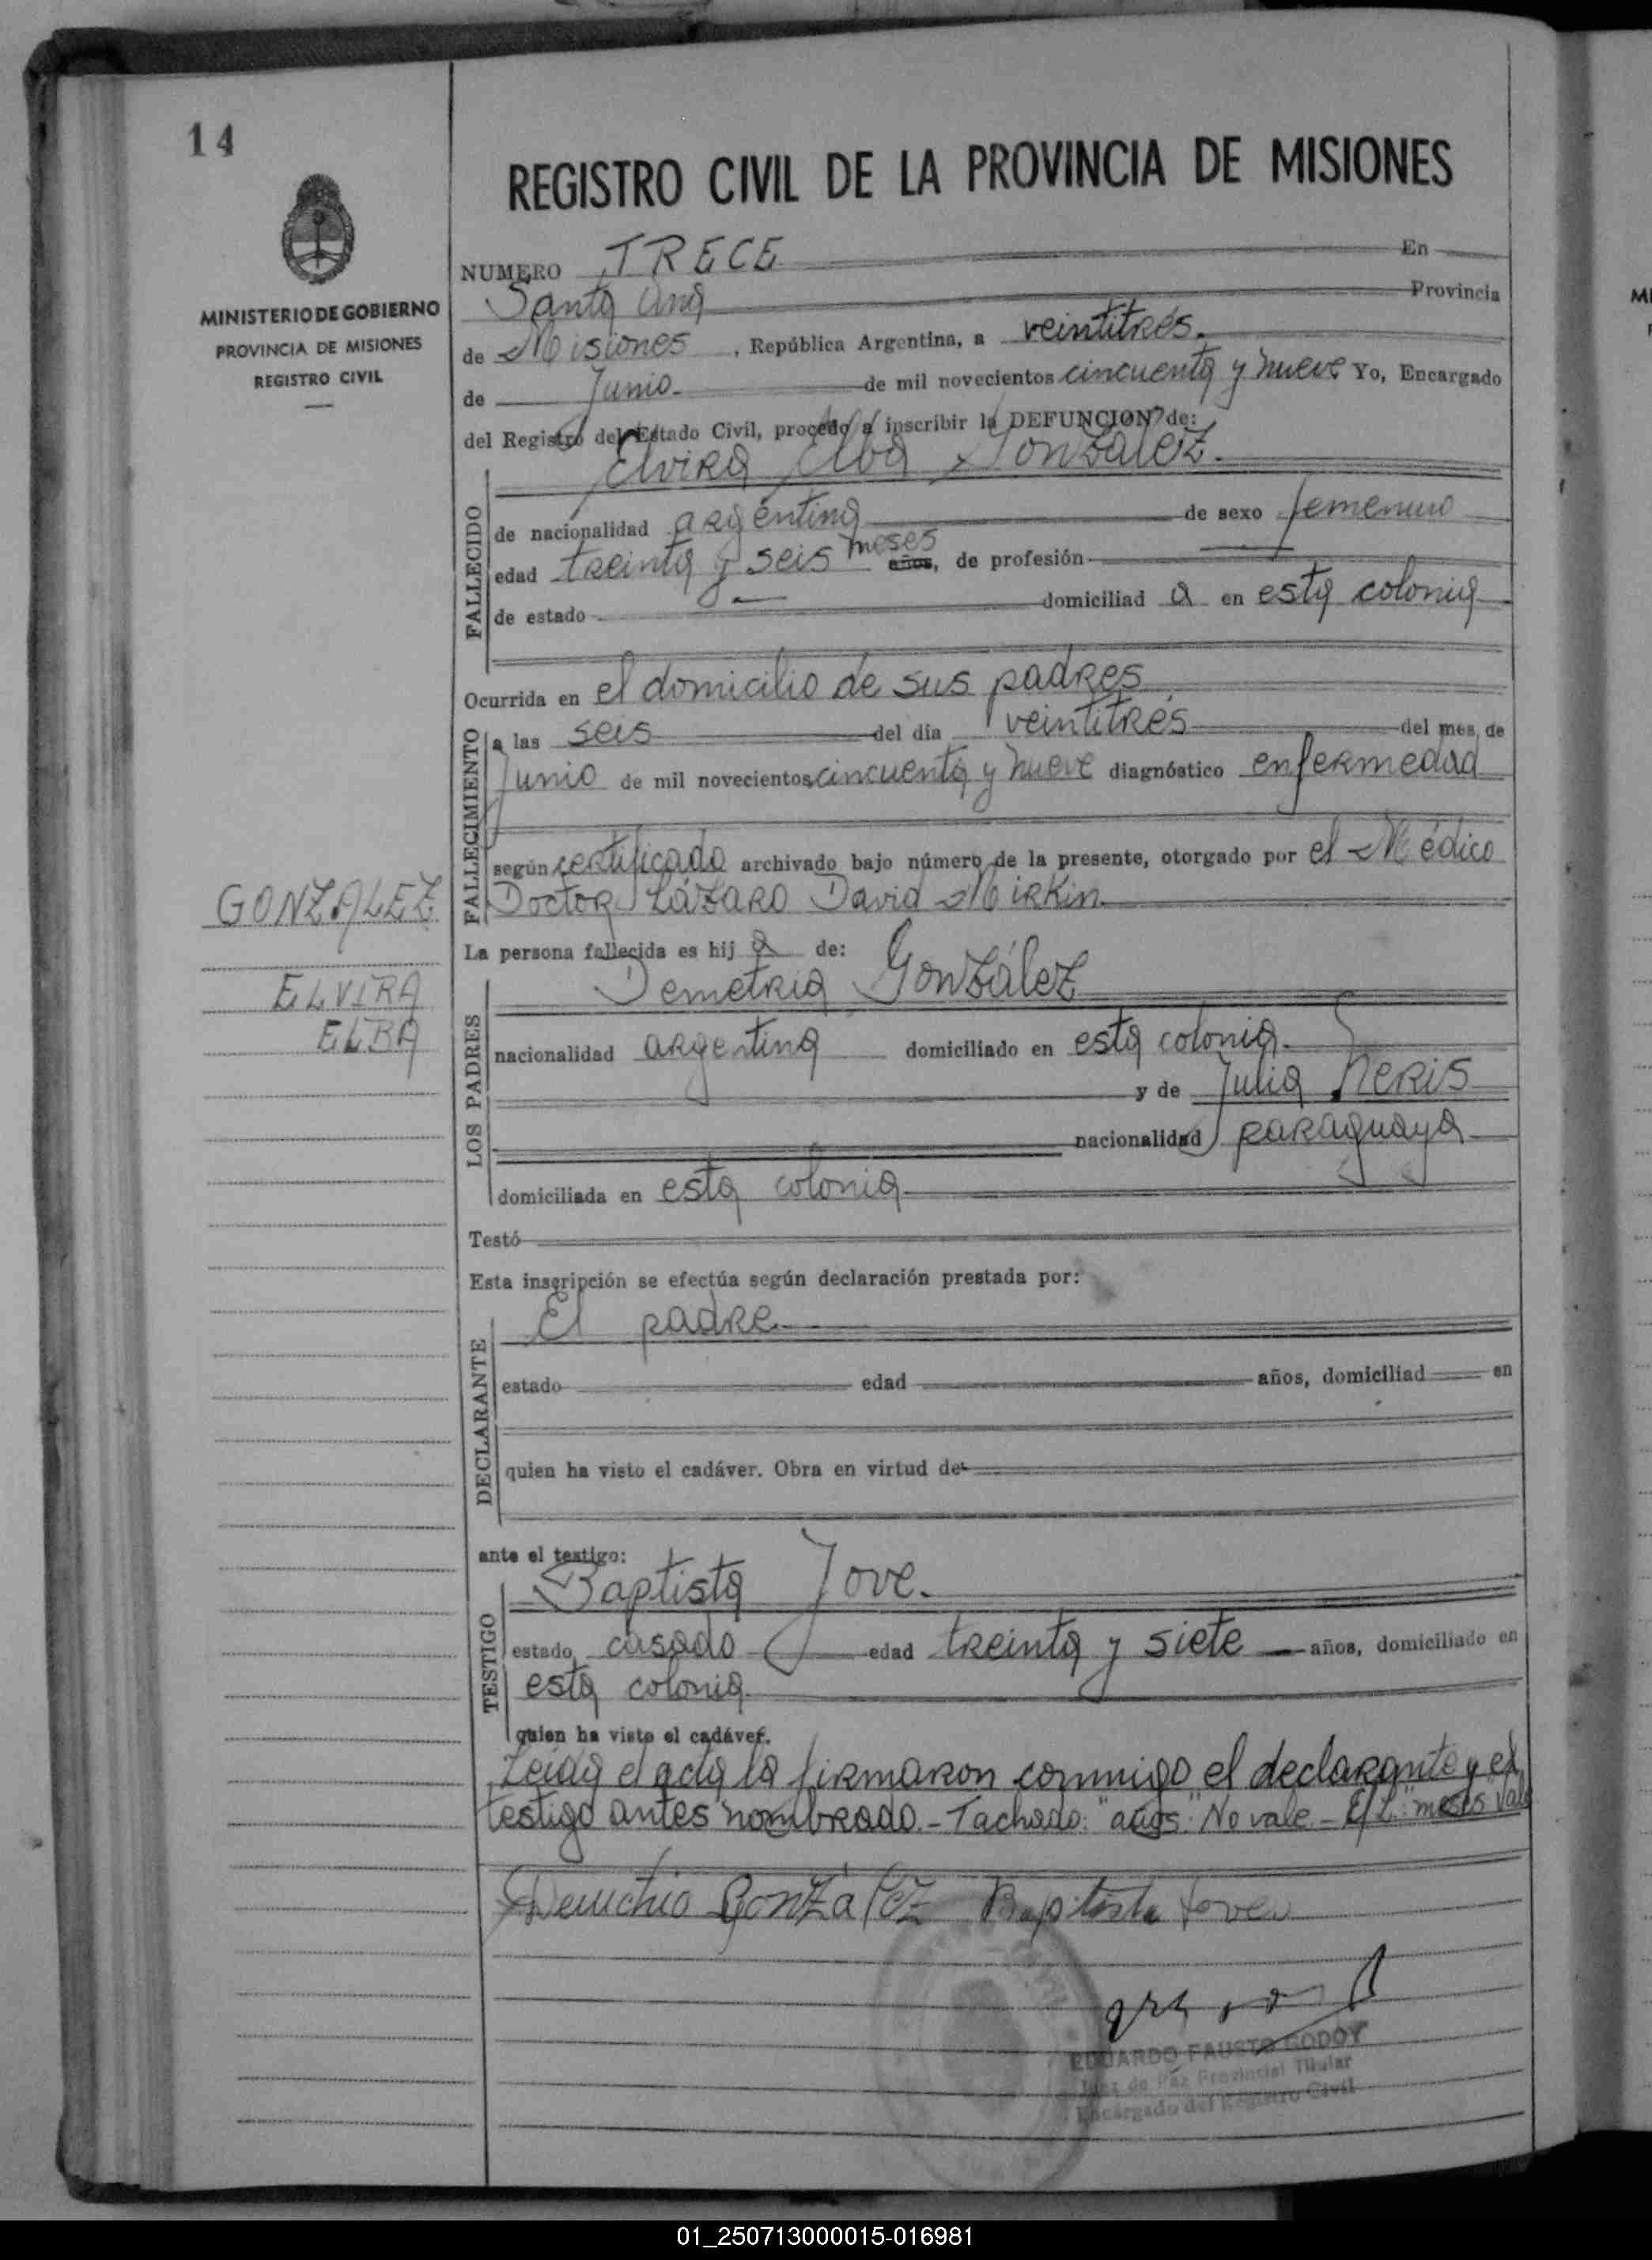 14
REGISTRO CIVIL DE LA PROVINCIA DE MISIONES
MINISTERIO DE GOBIERNO
PROVINCIA DE MISIONES
REGISTRO CIVIL
NUMERO TRECE En
Santa Ana Provincia
de Misiones, República Argentina, a veintitrés.
de Junio. de mil novecientos cincuenta y nueve Yo, Encargado
del Registro del Estado Civil, procedo a inscribir la DEFUNCION de:
Elvira Elba González.
FALLECIDO
de nacionalidad argentina de sexo femenino
edad treinta y seis meses años, de profesión
de estado domiciliad a en esta colonia
Ocurrida en el domicilio de sus padres
FALLECIMIENTO
a las seis del día veintitrés del mes de
Junio de mil novecientos cincuenta y nueve diagnóstico enfermedad
según certificado archivado bajo número de la presente, otorgado por el Médico
Doctor Lázaro David Mirkin.
GONZALEZ
ELVIRA
ELBA
La persona fallecida es hij a de:
LOS PADRES
Demetrio González
nacionalidad argentina domiciliado en esta colonia.
y de Julia Neris
nacionalidad paraguaya
domiciliada en esta colonia
Testó
Esta inscripción se efectúa según declaración prestada por:
DECLARANTE
El padre
estado edad años, domiciliad en
quien ha visto el cadáver. Obra en virtud de
ante el testigo:
TESTIGO
Baptista Jove.
estado casado edad treinta y siete años, domiciliado en
esta colonia
quien ha visto el cadáver.
Leida el acta la firmaron conmigo el declarante y el
testigo antes nombrado.- Tachado: "años": No vale.- E/L: "meses" Vale
González Baptista Jove
EDUARDO FAUSTO GODOY
Juez de Paz Provincial Titular
Encargado del Registro Civil
01_250713000015-016981